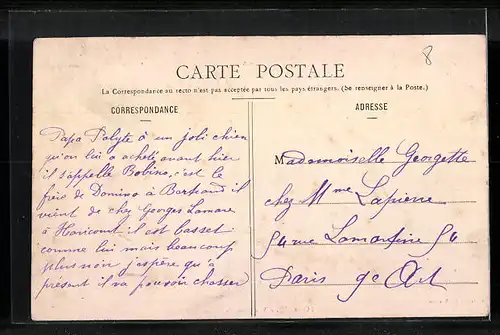 8
CARTE POSTALE
La Correspondance au recto n'est pas acceptée par tous les pays étrangers. (Se renseigner à la Poste.)
CORRESPONDANCE
Papa Polyte à un joli chien
qu'on lui a acheté avant hier
il s'appelle Bobino, c'est le
frère de Domino à Bertrand il
vient de chez Georges Lamare
à Haricourt il est basset
comme lui mais beaucoup
plus noir j'espère qu'à
présent il va pouvoir chasser
ADRESSE
Mademoiselle Georgette
chez Mme Lapierre
54 rue Lamartine 54
Paris 9e Art